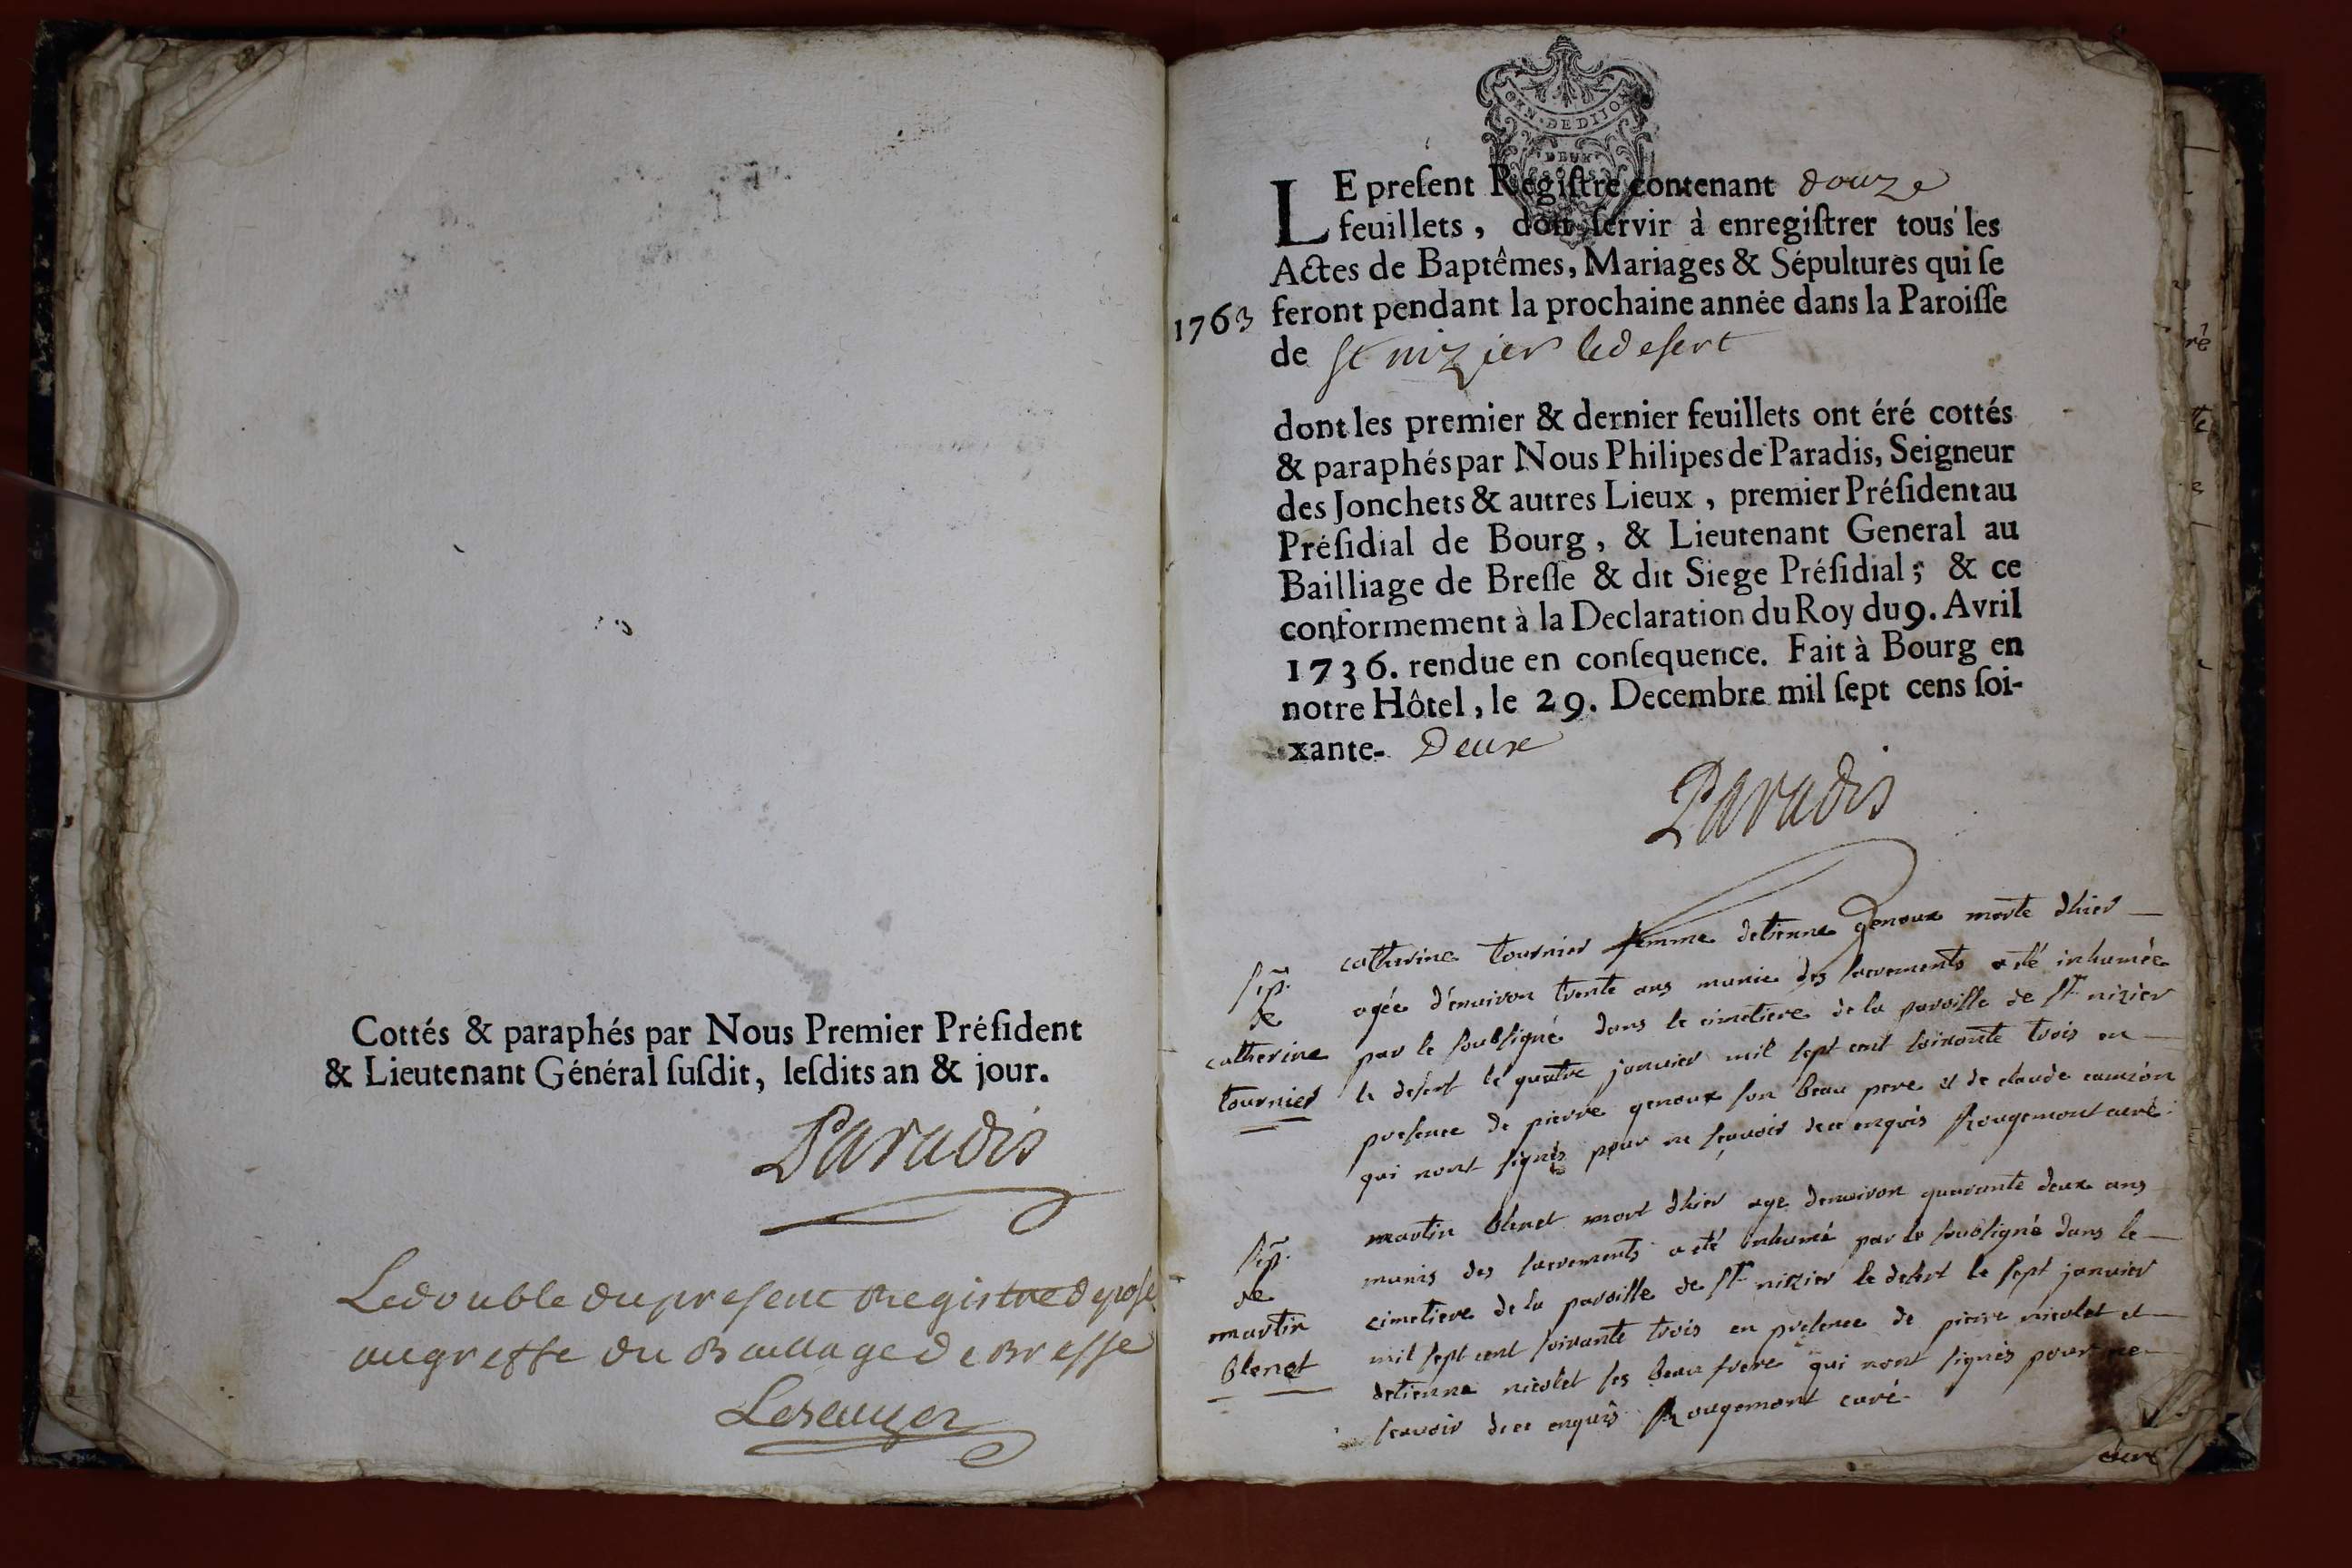 Cottés & paraphés par Nous Premier Préſident
& Lieutenant Général ſuſdit, leſdits an & jour.
Paradis
Ledouble dupresent Registre deposé
augreffe du Baillage de Bresse
GEN·DE DIJON
DEUX
SOLS
LE preſent Regiſtre contenant douze
feuillets, doit ſervir à enregiſtrer tous les
Actes de Baptêmes, Mariages & Sépultures qui ſe
1763 feront pendant la prochaine année dans la Paroiſſe
de St nizier ledesert
dont les premier & dernier feuillets ont éré cottés
& paraphés par Nous Philipes de Paradis, Seigneur
des Jonchets & autres Lieux, premier Préſident au
Préſidial de Bourg, & Lieutenant General au
Bailliage de Breſſe & dit Siege Préſidial; & ce
conformement à la Declaration du Roy du 9. Avril
1736. rendue en conſequence. Fait à Bourg en
notre Hôtel, le 29. Decembre mil ſept cens ſoi-
xante- Deux
Paradis
Sep.
de
catherine
tournier
catherine tournier femme detienne genoux morte dhier
agée d'environ trente ans munie des sacrements a eté inhumée
par le soubsigné dans le cimetiere de la paroisse de St nizier
le desert le quatre janvier mil sept cent soixante trois en
presence de pierre genoux son beau pere et de claude
qui nont signés pour ne sçavoir dece enquis Rougemont curé
Sep.
de
martin
blenet
martin blenet mort dhier age denviron quarante deux ans
munis des sacrements a eté inhumé par le soubsigné dans le
cimetiere de la paroisse de St nizier le desert le sept janvier
mil sept cent soixante trois en presence de pierre nicolet et
detienne nicolet ses beau frere qui nont signés pour ne
scavoir dece enquis Rougemont curé